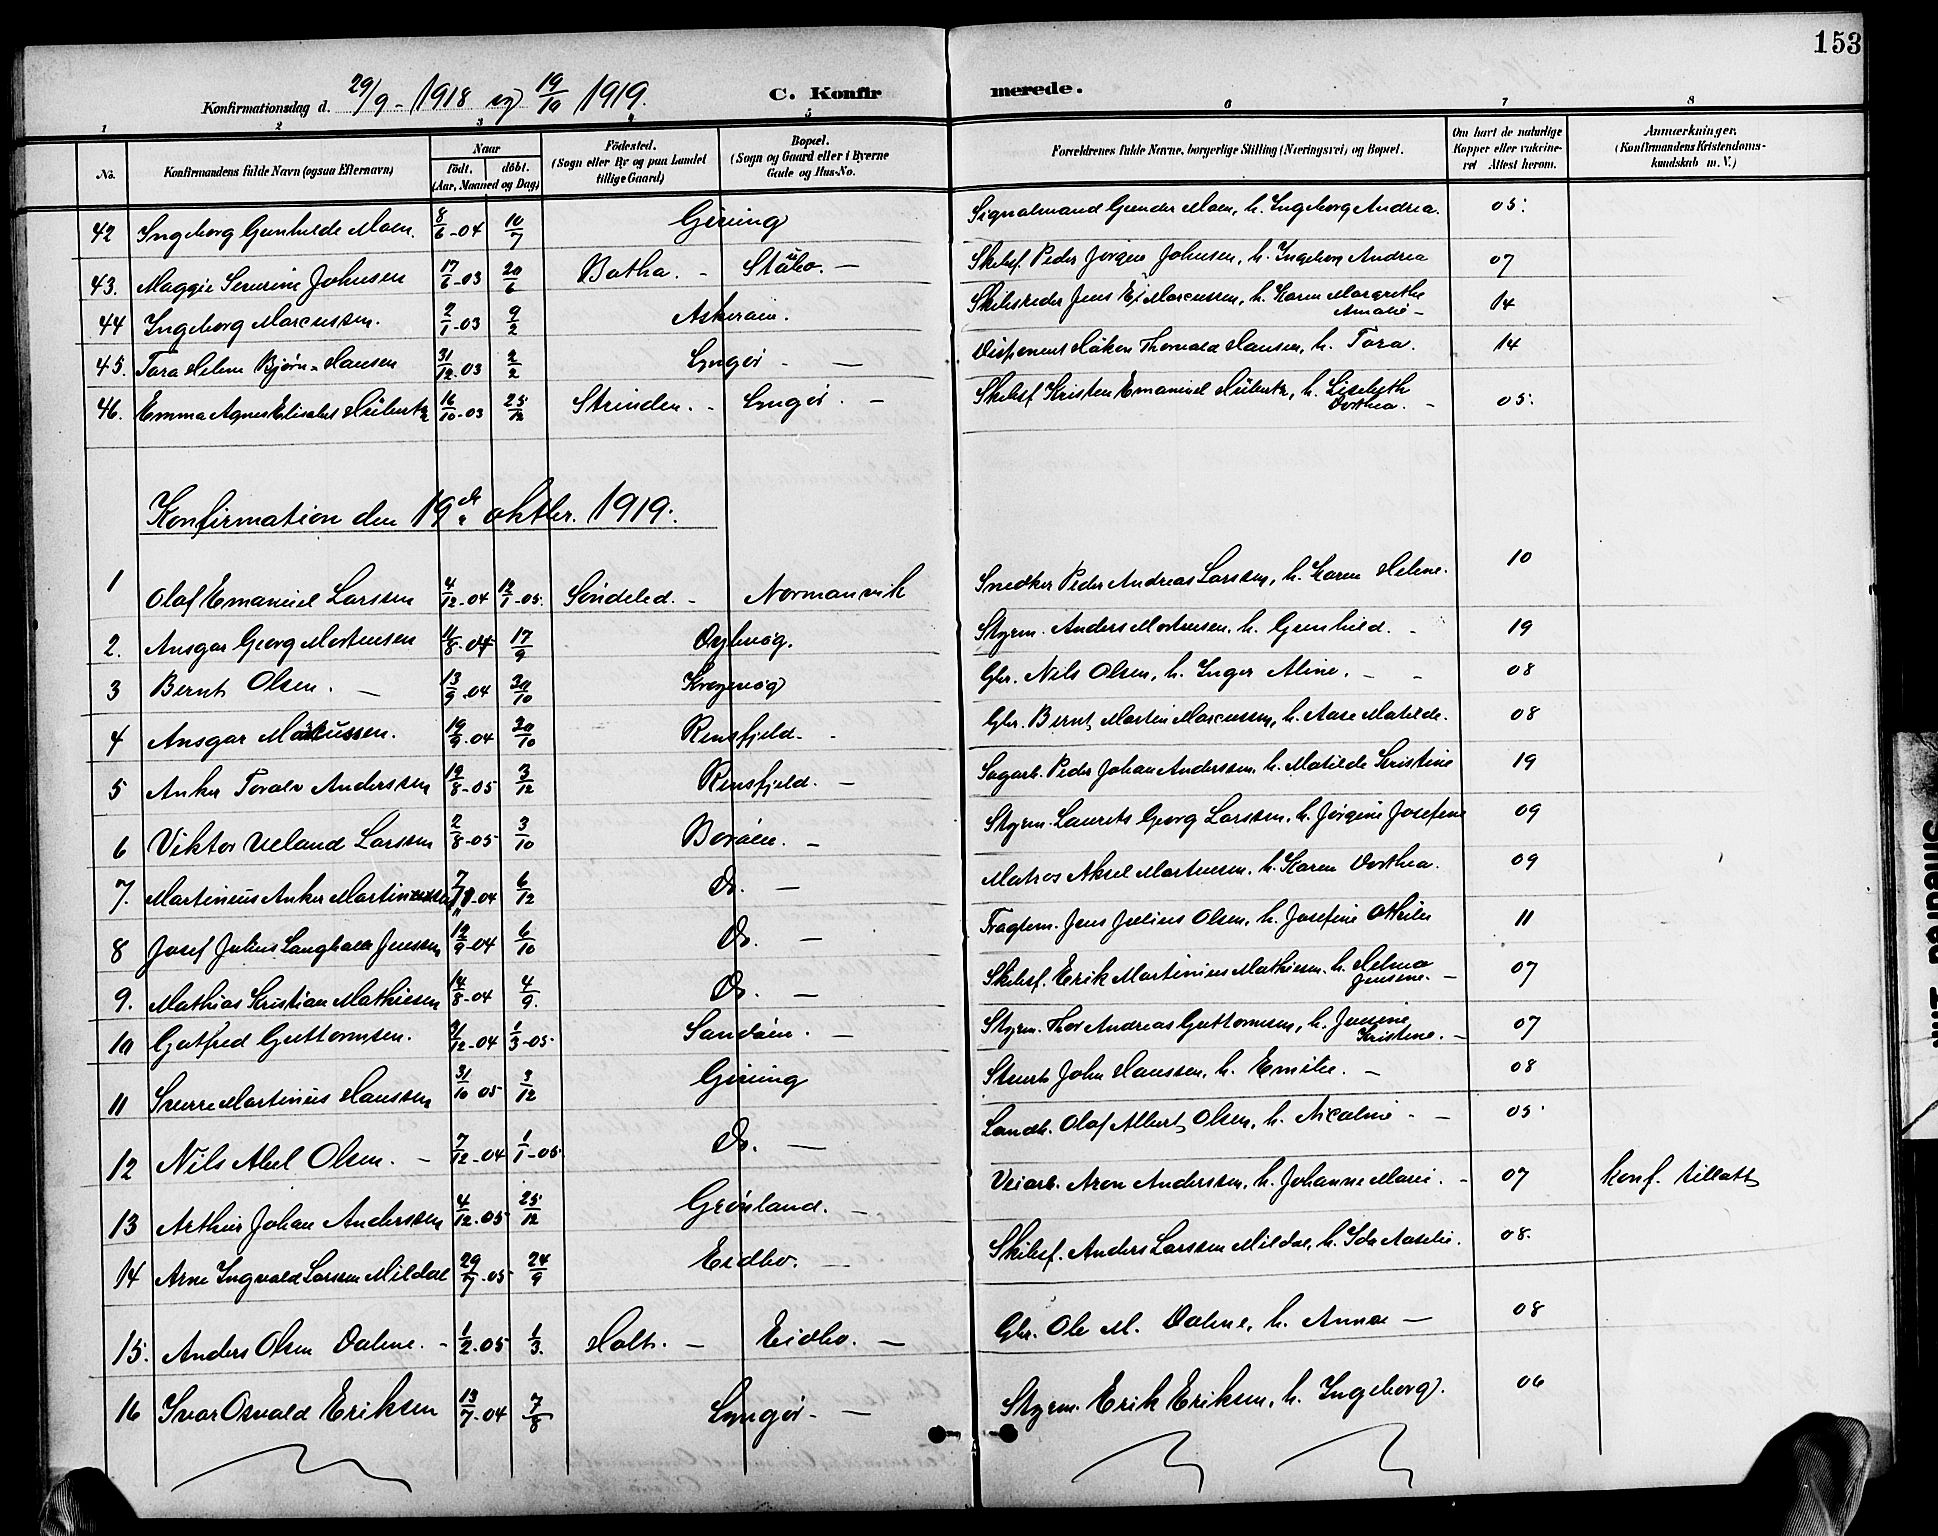 153
Konfirmationsdag d. 29/9 - 1918 og 19/10 1919. C. Konfirmerede.
1 2 3 4 5 6 7 8
No. Konfirmandens fulde Navn (ogsaa Efternavn) Naar Födt, döbt. (Aar, Maaned og Dag) Födested. (Sogn eller By og paa Landet tillige Gaard) Bopæl. (Sogn og Gaard eller i Byerne Gade og Hus-No. Forældrenes fulde Navne, borgerlige Stilling (Næringsvei) og Bopæl. Om havt de naturlige Kopper eller vakcineret Attest herom. Anmærkninger. (Konfirmandens Kristendomskundskab m. V.)
42 Ingeborg Gunhilde Moen. 8/6-04 10/7 Gjeving Signalmand Gunder Moen, h. Ingeborg Andrea. 05.
43. Maggie Severine Johnsen 17/6-03 20/6 Botha. - Staubo. - Skibsf. Peder Jørgen Johnsen, h. Ingeborg Andrea 07
44 Ingeborg Marcussen. 2/1-03 9/2 Askerøen. Skibsreder Jens Ej Marcussen, h. Karen Margrethe Amalie - 14
45. Tora Helene Bjørn-Hansen 31/12-03 2/2 Lyngør - - Disponent Håken Thorvald Hansen, h. Tora. 14
46. Emma Agnes Elisabet Hübertz 16/10-03 25/12 Strinden. - Lyngør. - Skibsf. Kristen Emanuel Hübertz, h. Lisebeth Dorthea. - 05.
Konfirmation den 19de oktbr. 1919.
1 Olaf Emanuel Larssen 4/12-04 12/1-05. Søndeled. - Normanvik Snedker Peder Andreas Larssen, h. Karen Helene. 10
2. Ansgar Georg Mortensen 11/8-04 17/9 Dybvåg. Styrm. Anders Mortensen. h. Gunhild. - 19
3 Bernt Olsen. - 13/9-04 30/10 Krogevåg Gbr. Nils Olsen, h. Inger Aline. - - 08
4 Ansgar Marcussen. 19/9-04 20/10 Rensfjeld. - Gbr. Bernt Martin Marcussen, h. Aase Matilde. 08
5 Anker Toralv Anderssen 12/8-05 3/12 Rensfjeld. - Sagarb. Peder Johan Anderssen. h. Matilde Kristine 19
6 Viktor Ueland Larssen 2/8-05 3/10 Borøen. - Styrm. Laurits Georg Larssen, h. Jørgine Josefine 09
7. Martinius Anker 7/11-04 6/12 Do. - Matros Aksel Martinsen. h. Karen Dorthea. 09
8 Josef Julius Langhalm Jenssen 12/9-04 6/10 Do. - Fragtem. Jens Julius Olsen, h. Josefine Othilie 11
9. Mathias Kristian Mathiesen 14/8-04 4/9. Do. - Skibsf. Erik Martinius Mathiesen. h. Helma Jensine. - 07
10 Gutfred Guttormsen. 31/12-04 1/3-05. Sandøen. - Styrm. Thor Andreas Guttormsen, h. Jensine Kristine. - 07
11 Sverre Martinius Hanssen 31/10 05 3/12 Gjeving Stuert John Hanssen, h. Emilie. - 08
12 Nils Abel Olsen. - 7/12-04 1/1-05 Do. - Landh. Olaf Albert Olsen, h. Nicoline - - 05.
13 Arthur Johan Anderssen 4/12-05 25/12 Grønland. - Veiarb. Aron Anderssen, h. Johanne Marie. - 07 Konf. tillatt
14 Arne Ingvald Larssen Mildal 29/7-05 24/9 Eidbo. - Skibsf. Anders Larssen Mildal, h. Ida Aaselie. 08.
15. Anders Olsen Dalene. - 1/2-05 1/3. Holt. - Eidbo. - Gbr. Ole M. Dalene, h. Anna - 08
16 Ivar Osvald Eriksen 13/7-04 7/8 Lyngør. - Styrm. Erik Eriksen, h. Ingeborg. 06